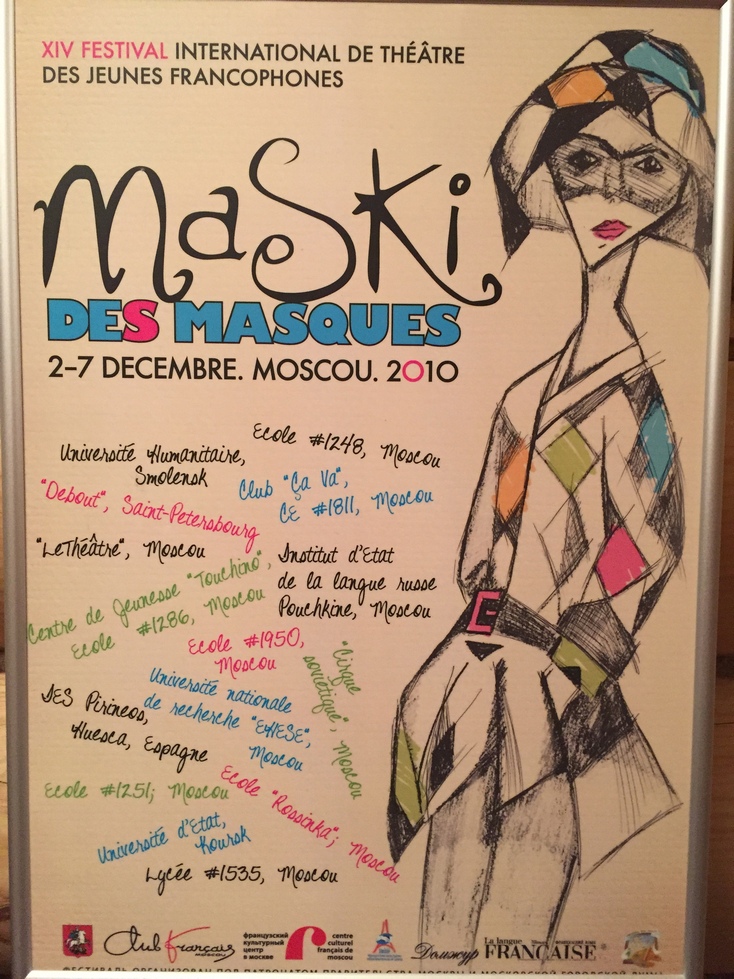 XIV FESTIVAL INTERNATIONAL DE THÉÂTRE
DES JEUNES FRANCOPHONES
Maski
DES MASQUES
2-7 DECEMBRE. MOSCOU. 2010
Ecole #1248, Moscou
Université Humanitaire,
Smolensk
Club "Ça Va",
CE #1811, Moscou
"Debout", Saint-Petersbourg
"LeThéâtre", Moscou
Institut d'Etat
de la langue russe
Pouchkine, Moscou
Centre de Jeunesse "Touchino",
Ecole #1286, Moscou
Ecole #1950,
Moscou
"Cirque
soviétique", Moscou
Université nationale
de recherche "EHESE",
Moscou
IES Pirineos,
Huesca, Espagne
Ecole #1251; Moscou
Ecole "Rossinka"; Moscou
Université d'Etat,
Koursk
Lycée #1535, Moscou
Club Français
MOSCOU
французский
культурный
центр
в москве
centre
culturel
français de
moscou
Домжур
La langue
FRANÇAISE
ФЕСТИВАЛЬ ОРГАНИЗОВАН ПОД ПАТРОНАТОМ ПРАВИТЕЛЬСТВА МОСКВЫ И МОСКОВСКОЙ ГОРОДСКОЙ ДУМЫ